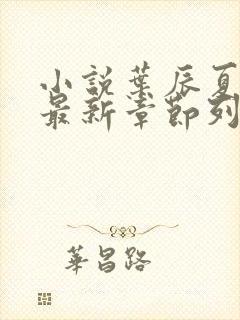 小説葉辰夏
最新章節列
華昌路